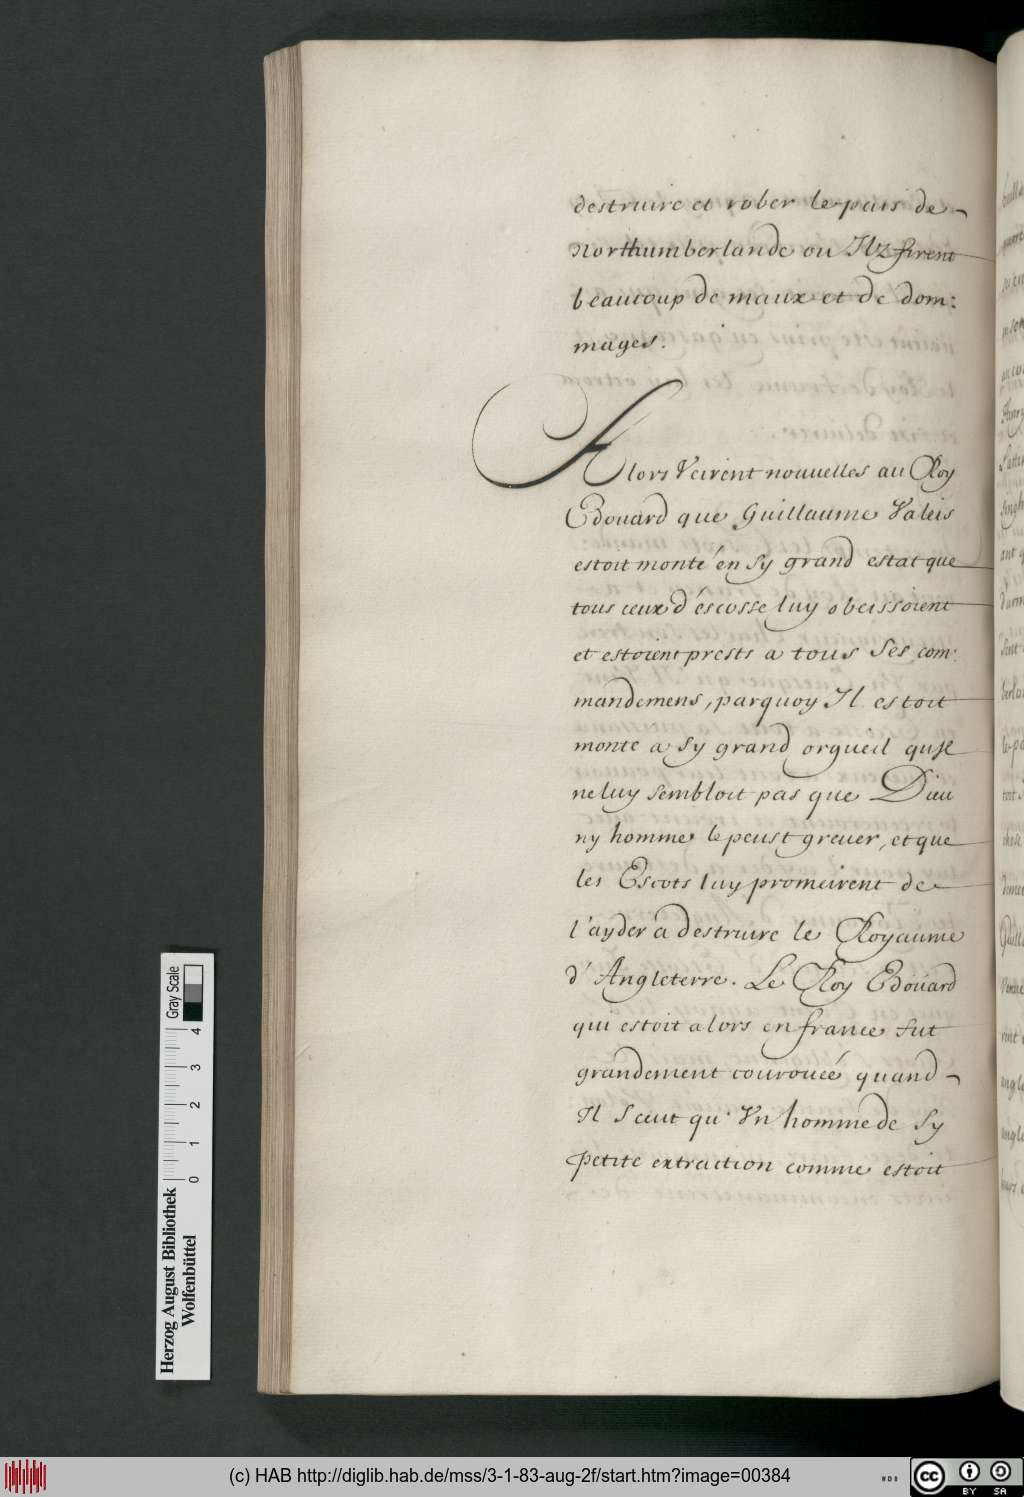 destruire et rober le païs de
Northumberlande ou Ilz firent
beaucoup de maux et de dom:
mages.
Alors Veirent nouuelles au Roy
Edouard que Guillaume Valeis
estoit monté en sy grand estat que
tous ceux d'éscosse luy obeissoient
et estoient prests a tous ses com:
mandemens, parquoy Il estoit
monte a sy grand orgueil qu'Il
ne luy sembloit pas que Dieu
ny homme le peust greuer, et que
les Escots luy promeirent de
l'ayder a destruire le Royaume
d'Angleterre. Le Roy Edoüard
qui estoit alors en france fut
grandement courouéé quand
Il sceut qu'Vn homme de sy
petite extraction comme estoit
Herzog August Bibliothek
Wolfenbüttel
0 1 2 3 4
Gray Scale
(c) HAB http://diglib.hab.de/mss/3-1-83-aug-2f/start.htm?image=00384
WDB
cc BY SA